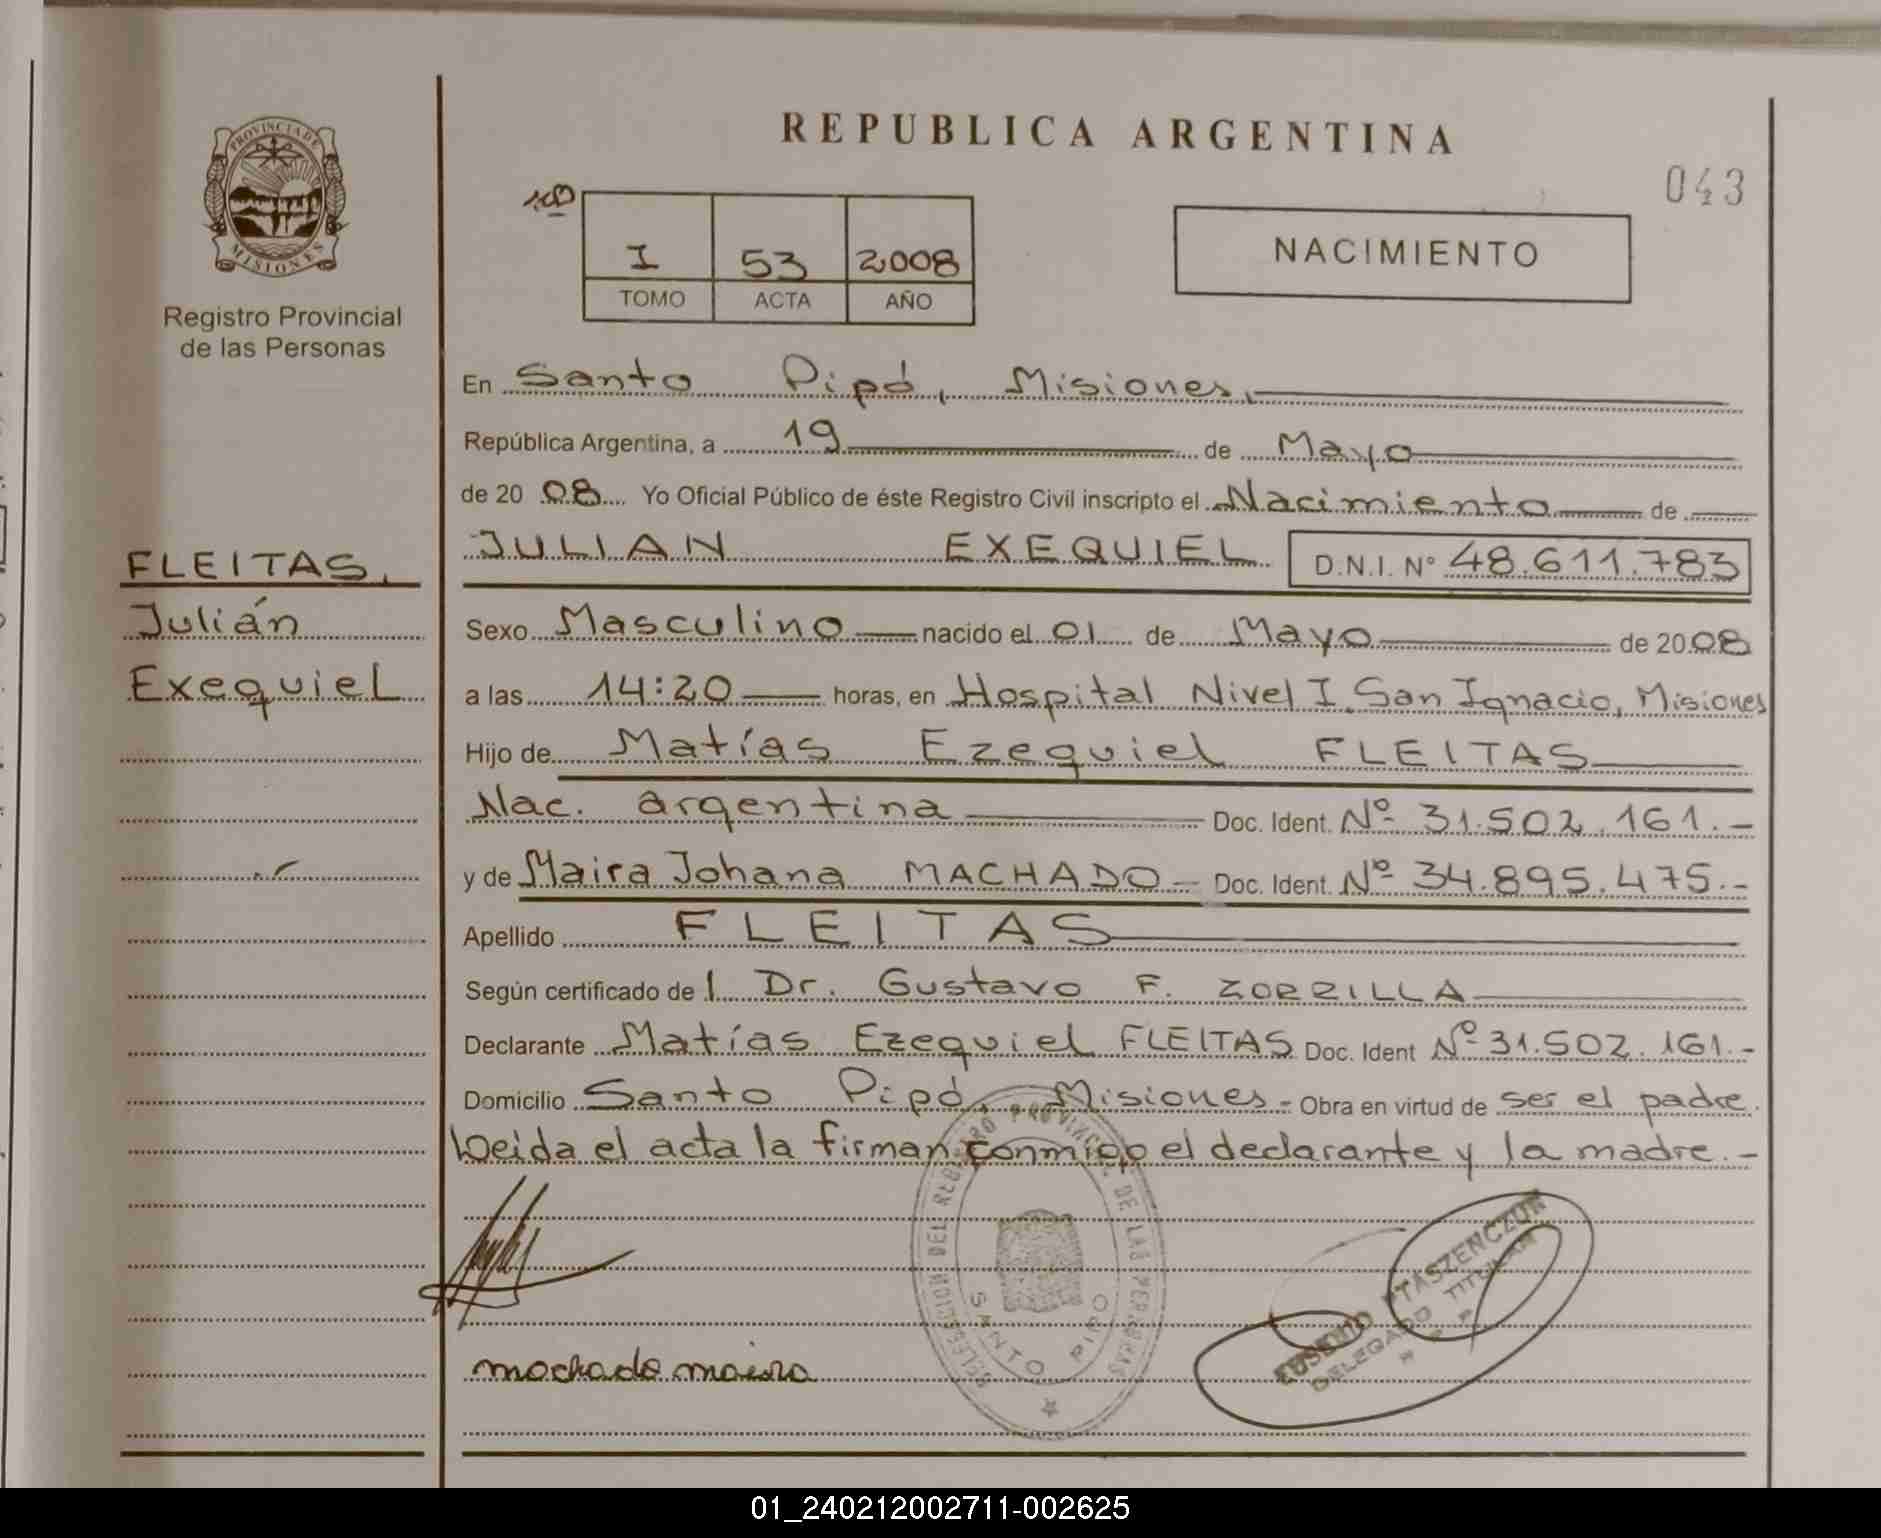 REPUBLICA ARGENTINA
043
PROVINCIA DE
MISIONES
Registro Provincial
de las Personas
I 53 2008
TOMO ACTA AÑO
NACIMIENTO
En Santo Pipó, Misiones,
República Argentina, a 19 de Mayo
de 20 08 Yo Oficial Público de éste Registro Civil inscripto el Nacimiento de
JULIAN EXEQUIEL D.N.I. Nº 48.611.783
FLEITAS,
Julián
Exequiel
Sexo Masculino nacido el 01 de Mayo de 20 08
a las 14:20 horas, en Hospital Nivel I San Ignacio, Misiones
Hijo de Matías Ezequiel FLEITAS
Nac. argentina Doc. Ident. Nº 31.502.161.-
y de Maira Johana MACHADO - Doc. Ident. Nº 34.895.475.-
Apellido FLEITAS
Según certificado de l Dr. Gustavo F. ZORRILLA
Declarante Matías Ezequiel FLEITAS Doc. Ident Nº 31.502.161.-
Domicilio Santo Pipó, Misiones - Obra en virtud de ser el padre.
Leida el acta la firman conmigo el declarante y la madre.-
DELEGACION DEL REGISTRO PROVINCIAL DE LAS PERSONAS
SANTO PIPO
PTASZENCZUK
DELEGADO TITULAR
machado maira
01_240212002711-002625